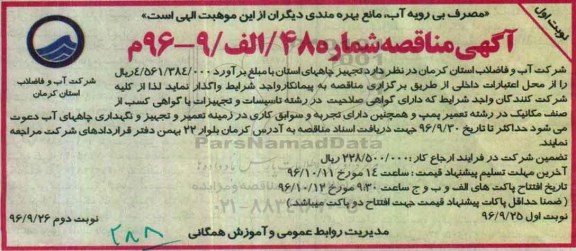 «مصرف بی رویه آب، مانع بهره مندی دیگران از این موهبت الهی است»
نوبت اول
آگهی مناقصه شماره ۴۸/الف/۹-۹۶م
شرکت آب و فاضلاب
استان کرمان
شرکت آب و فاضلاب استان کرمان در نظر دارد تجهیز چاههای استان با مبلغ برآورد ۴/۵۶۱/۳۸۴/۰۰۰ریال
را از محل اعتبارات داخلی از طریق برگزاری مناقصه به پیمانکار واجد شرایط واگذار نماید لذا از کلیه
شرکت کنندگان واجد شرایط که دارای گواهی صلاحیت در رشته تاسیسات و تجهیزات یا گواهی کسب از
صنف مکانیک در رشته تعمیر پمپ و همچنین دارای تجربه و سوابق کاری در زمینه تعمیر و تجهیز و نگهداری چاههای آب دعوت
می شود حداکثر تا تاریخ ۹۶/۹/۳۰ جهت دریافت اسناد مناقصه به آدرس کرمان بلوار ۲۲ بهمن دفتر قراردادهای شرکت مراجعه
نمایند.
ParsNamadData
تضمین شرکت در فرایند ارجاع کار: ۲۲۸/۵۰۰/۰۰۰ ریال
آخرین مهلت تسلیم پیشنهاد قیمت : ساعت ۱۴ مورخ ۹۶/۱۰/۱۱
تاریخ افتتاح پاکت های الف و ب و ج ساعت ۹:۳۰ مورخ ۹۶/۱۰/۱۲
( ضمنا حداقل پاکات پیشنهاد قیمت جهت افتتاح دو پاکت میباشد )
نوبت اول ۹۶/۹/۲۵
نوبت دوم ۹۶/۹/۲۶
مدیریت روابط عمومی و آموزش همگانی
۲۸۸